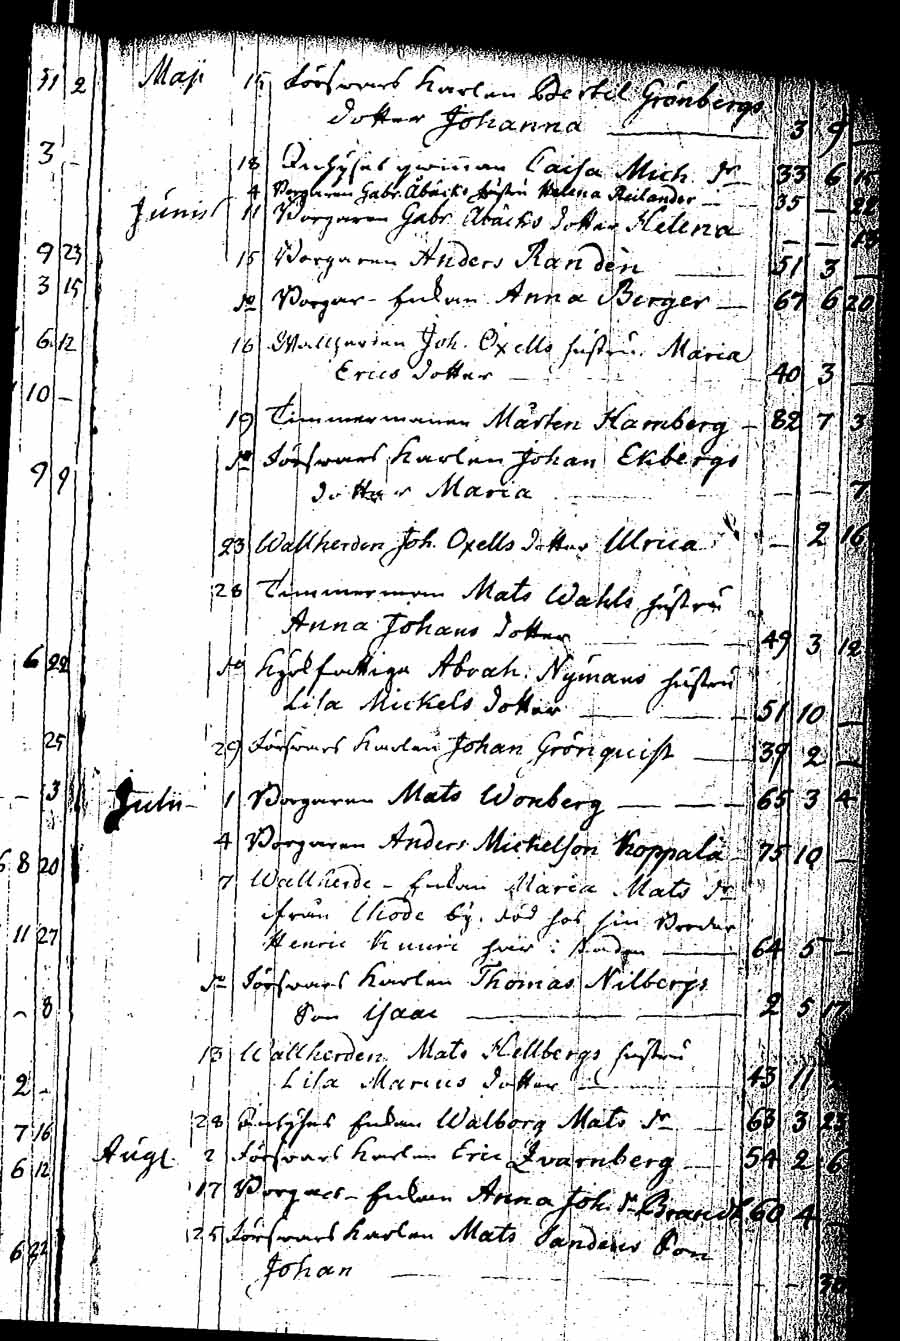 51 2 Maji 15 Försvars Karlen Bertel Grönbergs
dotter Johanna 3 9
3 - 18 Enhyses qwinnan Caisa Mich. dr 33 6 15
4 Borgaren Gabr. Åbäcks hustru Helena Reilander 35 - 22
Junii 11 Borgaren Gabr. Åbäcks dotter Helena - - 13
9 23 15 Borgaren Anders Randèn 51 3 -
3 15 do Borgar-Enkan Anna Berger 67 6 20
6 12 16 Wallherden Joh. Oxells hustru Maria
Erics dotter 40 3 -
10 - 19 Timmermannen Mårten Hamberg 82 7 3
do Försvars Karlen Johan Ekbergs
9 9 dotter Maria - - 7
23 Wallherden Joh. Oxells dotter Ulrica - 2 16
28 Timmerman Mats Wahls hustru
Anna Johans dotter 49 3 12
6 22 do Abrah. Nÿmans hustru
Lisa Mickels dotter 51 10 -
25 29 Försvars Karlen Johan Grönquist 39 2 -
- 3 Julii 1 Borgaren Mats Wonberg 65 3 4
4 Borgaren Anders Mickelson Koppala 75 10 -
8 20 7 Wallherde-Enkan Maria Mats dr
från by, död hos sin Broder
11 27 Henric här i staden 64 5 -
do Försvars Karlen Thomas Nilbergs
- 8 Son Isaac 2 5 17
13 Wallherden Mats Hellbergs hustru
2 - Lisa Marcus dotter 43 11
28 Enhyses Enkan Walborg Mats dr 63 3 23
7 16
6 12 Aug. 2 Försvars Karlen Eric Qvarnberg 54 2 6
17 Borgar-Enkan Anna Joh. dr Brandt 60 4 -
6 22 25 Försvars Karlen Mats Sandens Son
Johan - -